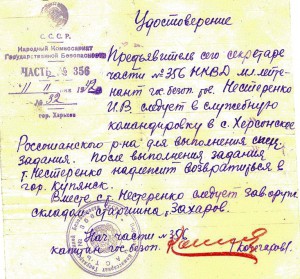 Удостоверение
С.С.С.Р.
Народный Комиссариат
Государственной Безопасности
ЧАСТЬ № 356
"11" 11 1942
№ 32
гор. Харьков
Предъявитель сего секретарь
части №356 НКВД мл. лейте-
нант гос. безоп. тов. Нестеренко
И.В следует в служебную
командировку в с. Херсонское
Россошанского р-на для выполнения спец.
задания. После выполнения задания
т. Нестеренко надлежит возвратиться в
гор. Купянск.
Вместе с т. Нестеренко следует зав. оруж.
складом старшина Захаров.
Нач части №356
капитан гос. безоп.